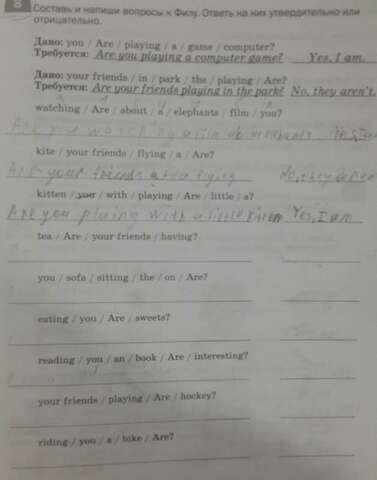 8 Составь и напиши вопросы к Филу. Ответь на них утвердительно или
отрицательно.
Дано: you / Are / playing / a / game / computer?
Требуется: Are you playing a computer game? Yes, I am.
Дано: your friends / in / park / the / playing / Are?
Требуется: Are your friends playing in the park? No, they aren't.
watching / Are / about / a / elephants / film / you?
Are you watching a film
kite / your friends / flying / a / Are?
Are your friends a kite flying No, they
kitten / your / with / playing / Are / little / a?
Are you playing with a little Yes, I am
tea / Are / your friends / having?
you / sofa / sitting / the / on / Are?
eating / you / Are / sweets?
reading / you / an / book / Are / interesting?
your friends / playing / Are / hockey?
riding / you / a / bike / Are?